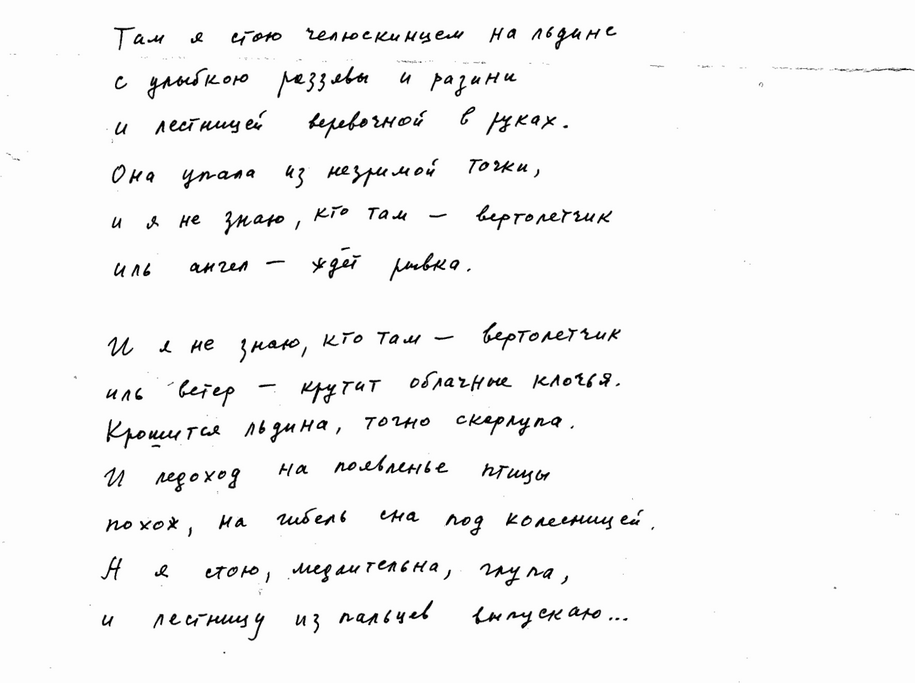 Там я стою челюскинцем на льдине
с улыбкою раззявы и разини
и лестницей веревочной в руках.
Она упала из незримой точки,
и я не знаю, кто там — вертолетчик
иль ангел — ждёт рывка.
И я не знаю, кто там — вертолетчик
иль ветер — крутит облачные клочья.
Крошится льдина, точно скорлупа.
И ледоход на появленье птицы
похож, на гибель сна под колесницей.
А я стою, медлительна, глупа,
и лестницу из пальцев выпускаю...